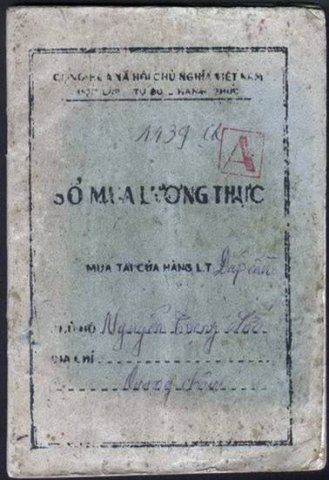 CỘNG HÒA XÃ HỘI CHỦ NGHĨA VIỆT NAM
ĐỘC LẬP TỰ DO HẠNH PHÚC
1139
A
SỔ MUA LƯƠNG THỰC
MUA TẠI CỬA HÀNG L.T Đáp Cầu
CHỦ HỘ Nguyễn Trọng
ĐỊA CHỈ